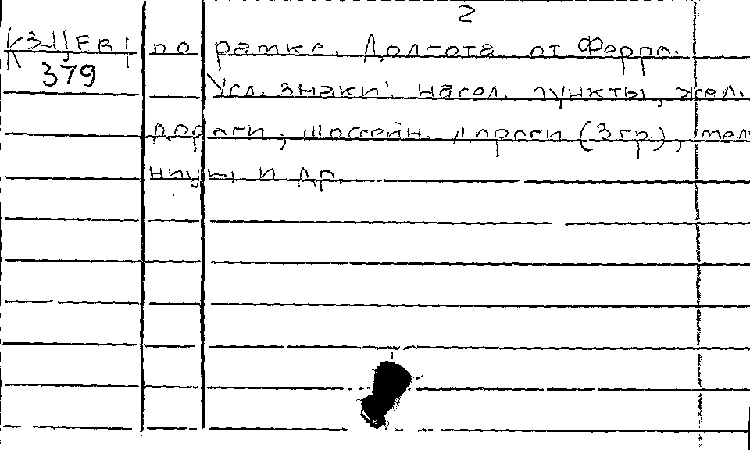 2
К3ЦЕВ1 по рамке. Долгота от Ферро.
К 379
Усл. знаки: насел. пункты, жел.
дороги, шоссейн. дороги (3 гр.), мел
ницы и др.